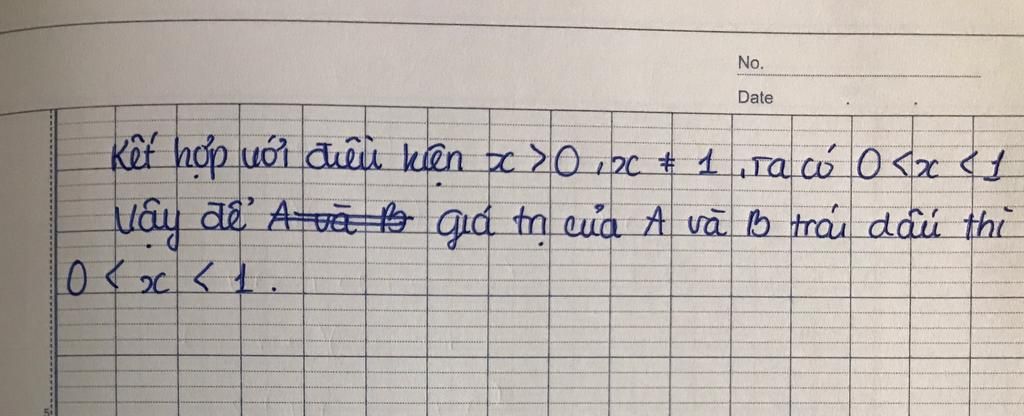 No.
Date
Kết hợp với điều kiện x > 0, x ≠ 1, ta có 0 < x < 1
Vậy để A và B giá trị của A và B trái dấu thì
0 < x < 1.